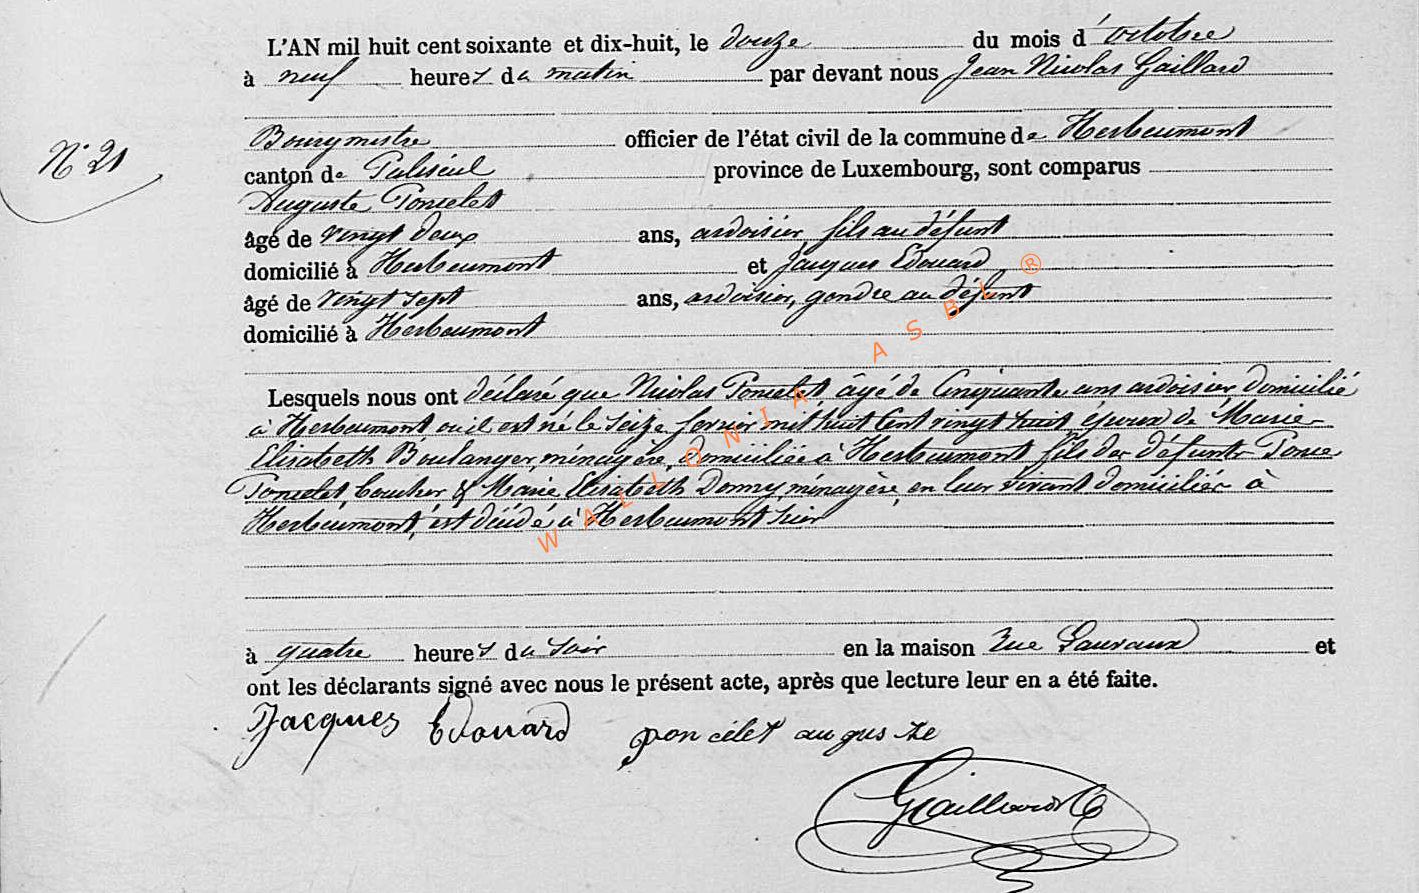 L'AN mil huit cent soixante et dix-huit, le douze du mois d'octobre
à neuf heures du matin par devant nous Jean Nicolas Gaillard
Bourgmestre officier de l'état civil de la commune de Herbeumont
N° 21
canton de Paliseul province de Luxembourg, sont comparus
Auguste Poncelet
âgé de vingt deux ans, ardoisier, fils au défunt
domicilié à Herbeumont et Jacques Edouard
âgé de vingt sept ans, ardoisier, gendre au défunt
domicilié à Herbeumont
Lesquels nous ont déclaré que Nicolas Poncelet âgé de Cinquante ans ardoisier domicilié
à Herbeumont où il est né le seize février mil huit Cent vingt huit, époux de Marie
Elisabeth Boulanger, ménagère, domiciliée à Herbeumont fils des défunts Ponce
Poncelet, & Marie Elisabeth ménagère, en leur vivant domiciliés à
Herbeumont, est décédé à Herbeumont hier
à quatre heures du soir en la maison Rue et
ont les déclarants signé avec nous le présent acte, après que lecture leur en a été faite.
Jacques Edouard poncélet auguste
Gaillard
WALLONIA ASBL ®